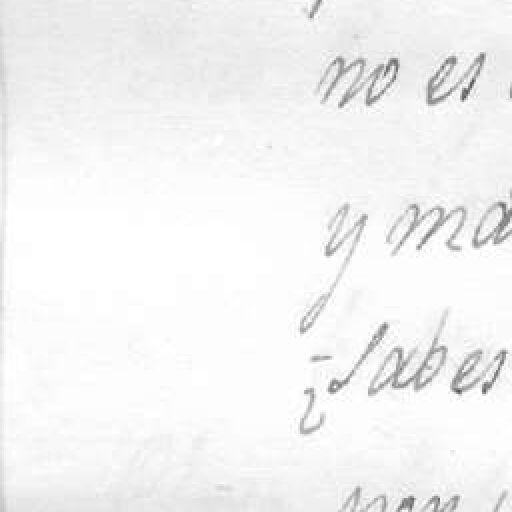 no es
y má
¿Sabes